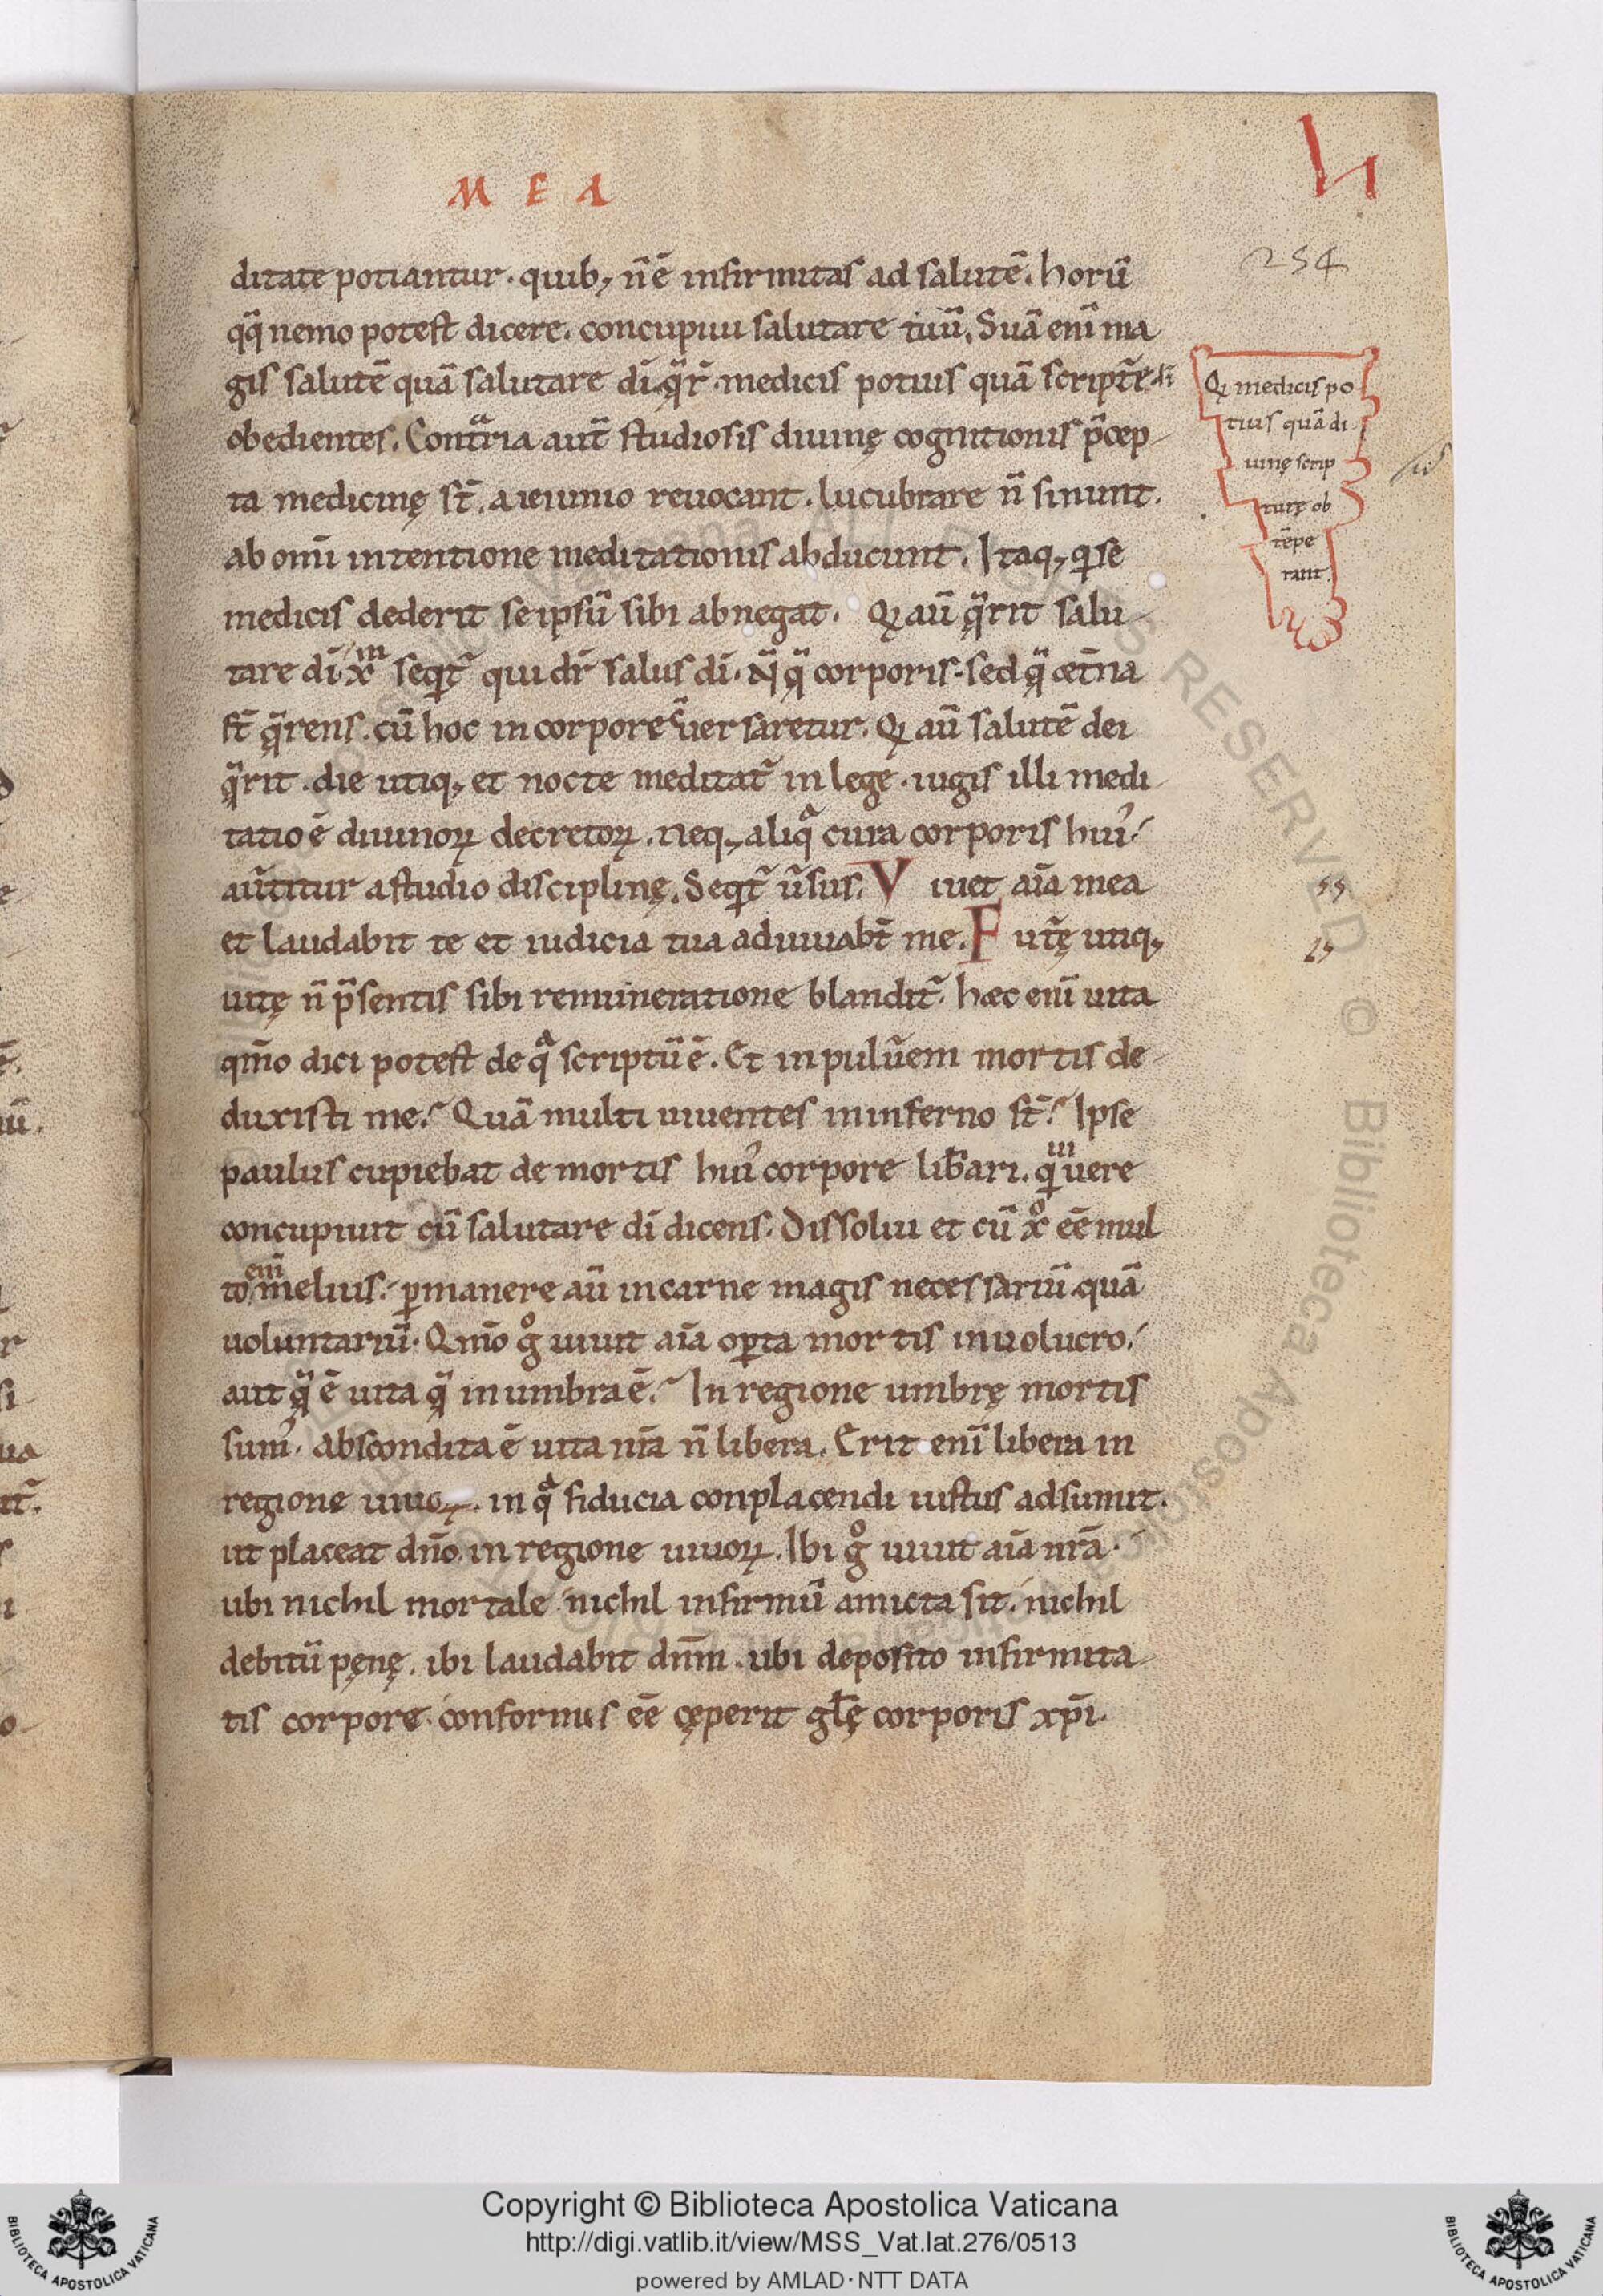 M E A
254
ditate potiantur. quib; n̄ ē infirmitas ad salutē. horū
qq̄ nemo potest dicere. concupiui salutare tuū. Suā enī ma
gis salutē quā salutare dī q̄r̄. medicis potius quā scriptrę dī
obedientes. Contͣria aut̄ studiosis diuinę cognitionis p̄cep-
ta medicinę st̄. a ieiunio reuocant. lucubrare n̄ sinunt.
ab omī intentione meditationis abducunt. Itaq; qͥ se
medicis dederit se ipsū sibi abnegat. Qͥ aū q̄rit salu-
tare dī xm̄ seqͥt̄ qui dr̄ salus dī. N̄ q̄ corporis. sed q̄ æt̄na
st̄ q̄rens. cū hoc in corpore ūersaretur. Qͥ aū salutē dei
q̄rit. die utiq; et nocte meditat̄ in lege. iugis illi medi-
tatio ē diuinoꝝ decretoꝝ. neq; aliqͣ cura corporis huı᾽
aūtitur a studio disciplinę. Seqͥt̄ ūsus. Viuet aīa mea
et laudabit te et iudicia tua adiuuabt̄ me. Fut̄ę utiq;
uitę n̄ p̄sentis sibi remuneratione blandit̄. hæc enī uita
qm̄o dici potest de qͣ scriptū ē. Et in puluēm mortis de-
duxisti me? Quā multi uiuentes in inferno st̄? Ipse
paulus cupiebat de mortis huı᾽ corpore lib̄ari. qͥ uere
concupiuit cū salutare dī dicens. Dissolui et cū xͦ eē mul
to enī melius. ꝑmanere aū in carne magis necessariū quā
uoluntariū. Qm̄o gͦ uiuit aīa oꝑta mortis inuolucro.
aut q̄ ē uita q̄ in umbra ē? In regione umbrę mortis
sum᾽. abscondita ē uita nr̄a n̄ libera. Erit enī libera in
regione uiuoꝝ. in qͣ fiducia conplacendi iustus adsumit.
ut placeat dn̄o in regione uiuoꝝ. Ibi gͦ uiuit aīa nr̄a.
ubi nichil mortale nichil infirmū amicta sit. nichil
debitū pęnę. ibi laudabit dn̄m. ubi deposito infirmita-
tis corpore. conformis eē cęperit gl̄ę corporis xp̄i.
Qͥ medicis po
tius quā di
uinę scrip
turę ob
tēpe
rant